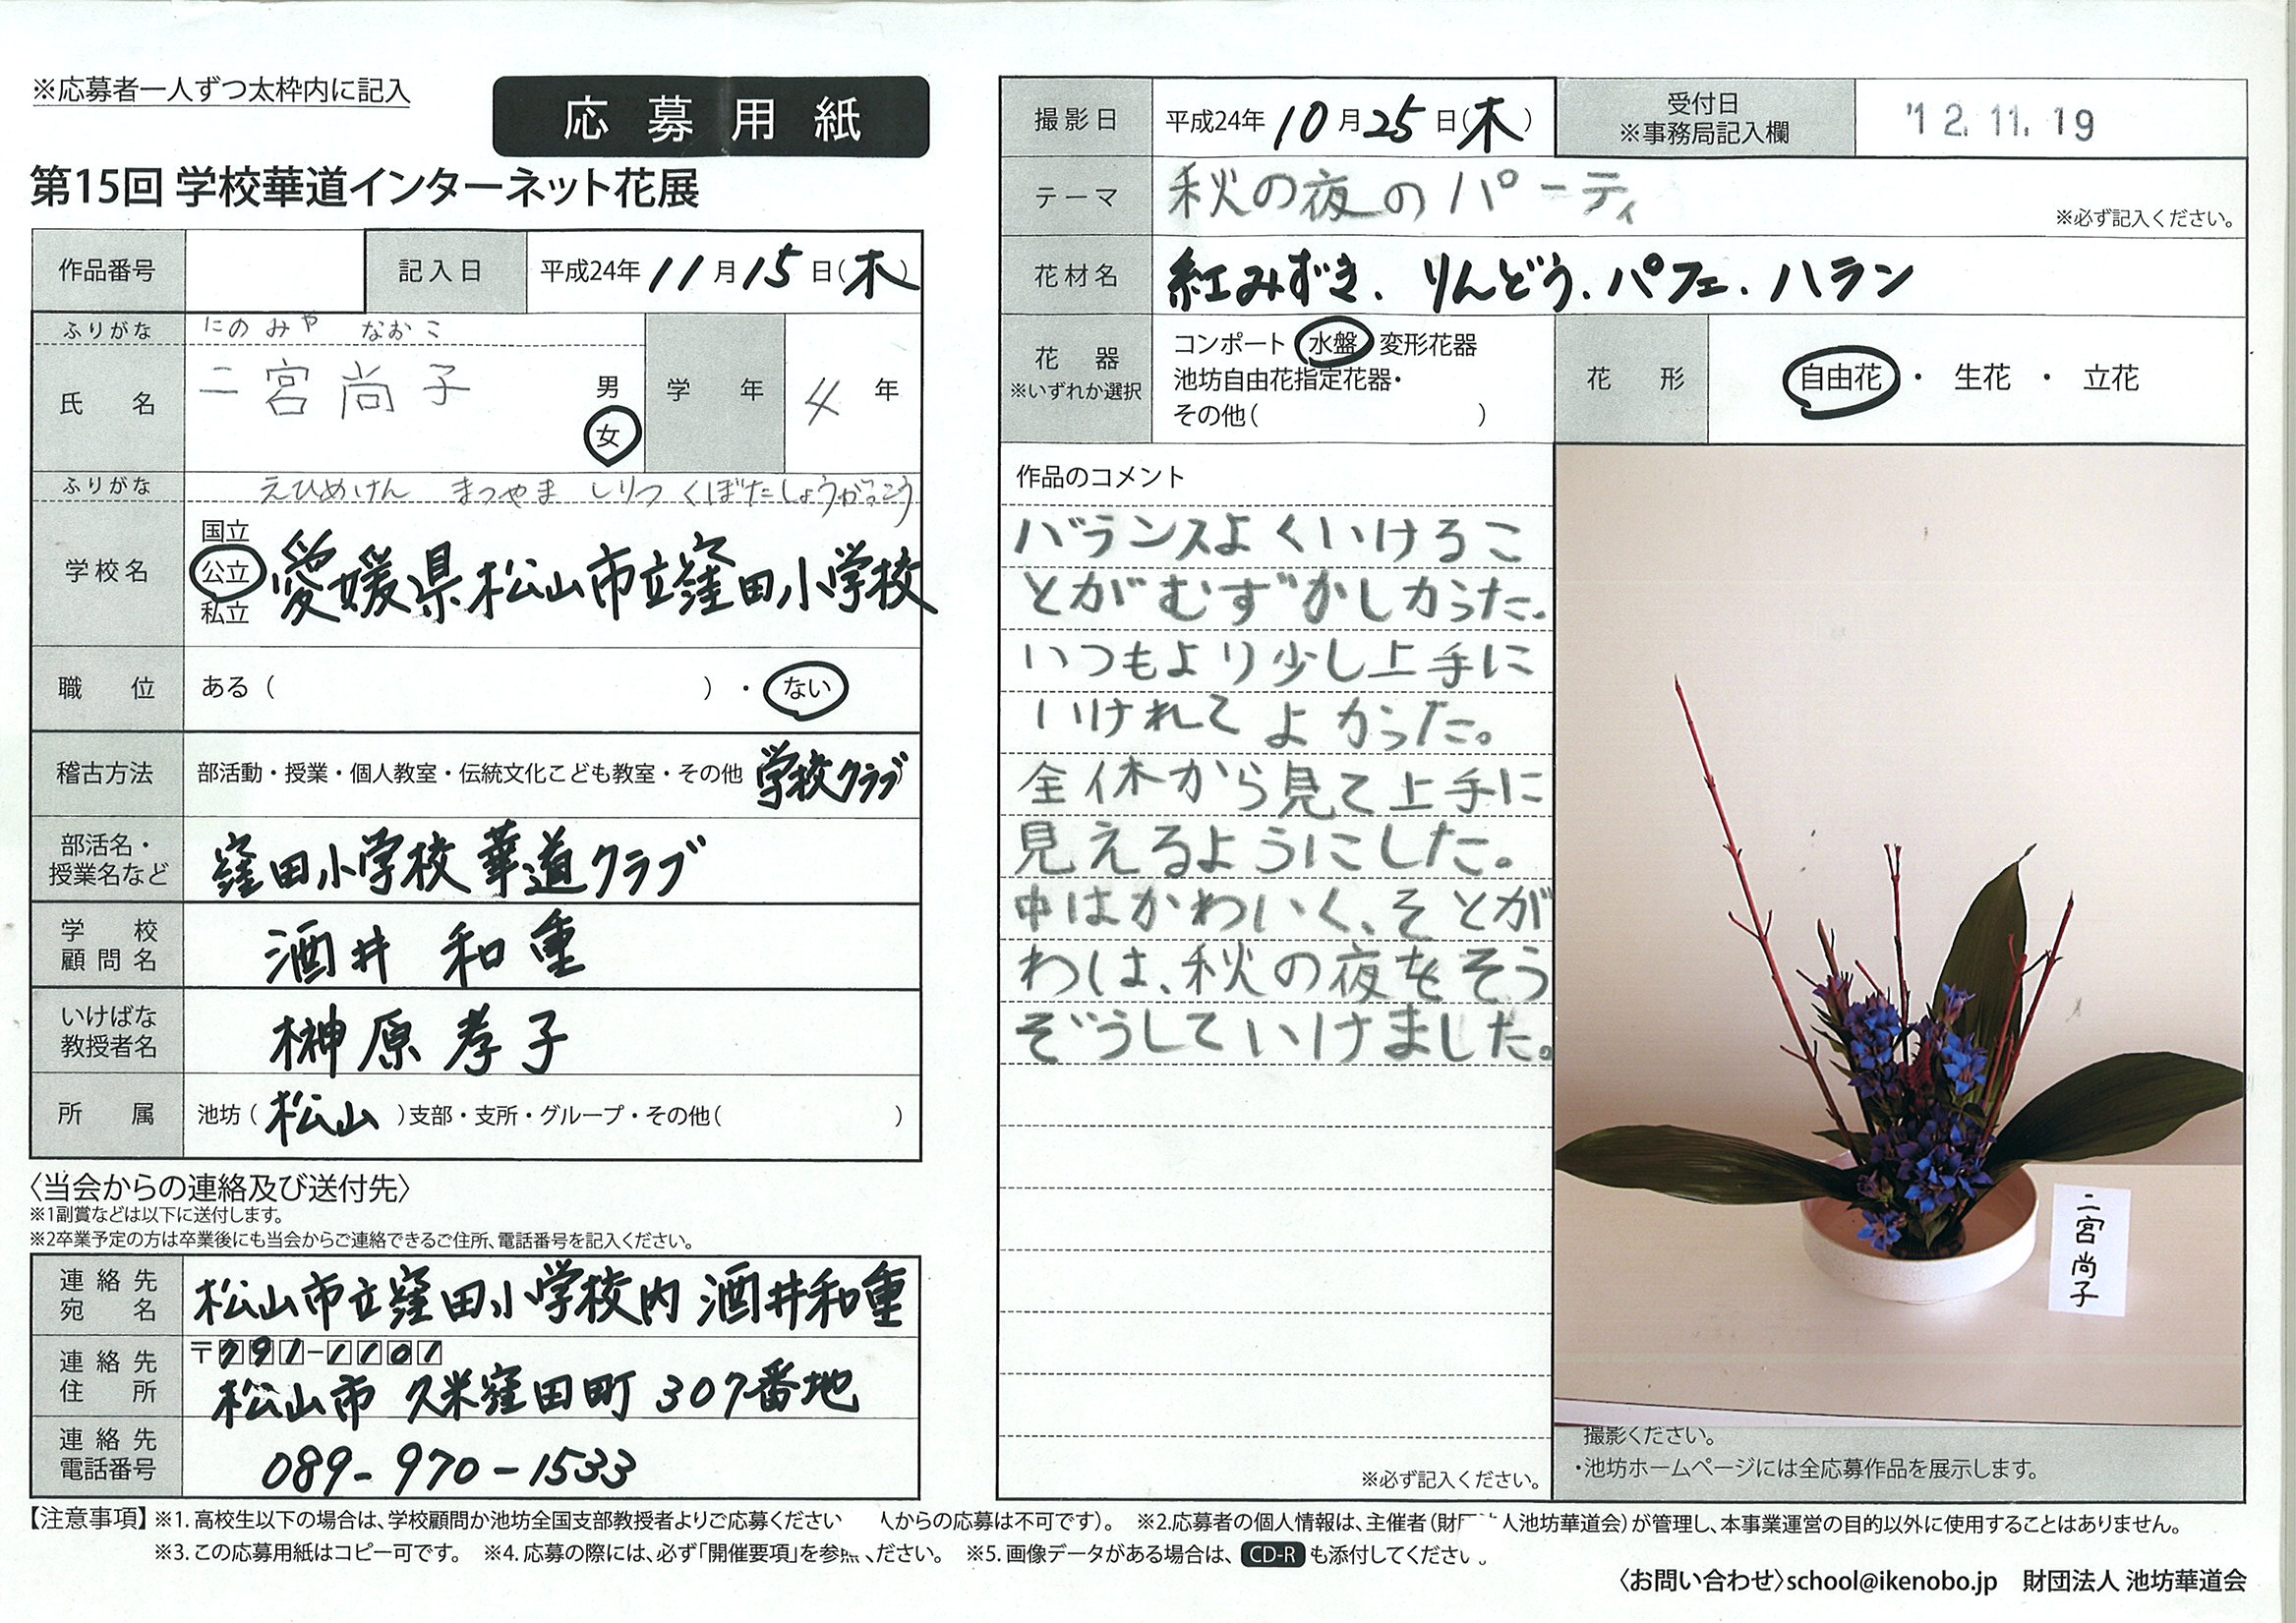 ※応募者一人ずつ太枠内に記入
応募用紙
第15回 学校華道インターネット花展
作品番号
記入日 平成24年 11月15日(木)
ふりがな にのみや なおこ
氏名 二宮尚子 男 女
学年 4年
ふりがな えひめけん まつやま しりつ くぼたしょうがっこう
学校名 国立 公立 私立 愛媛県松山市立窪田小学校
職位 ある( )・ない
稽古方法 部活動・授業・個人教室・伝統文化こども教室・その他 学校クラブ
部活名・授業名など 窪田小学校 華道クラブ
学校顧問名 酒井 和重
いけばな教授者名 榊原 孝子
所属 池坊(松山)支部・支所・グループ・その他( )
〈当会からの連絡及び送付先〉
※1副賞などは以下に送付します。
※2卒業予定の方は卒業後にも当会からご連絡できるご住所、電話番号を記入ください。
連絡先宛名 松山市立窪田小学校内 酒井和重
連絡先住所 〒791-1101
松山市 久米窪田町 307番地
連絡先電話番号 089-970-1533
撮影日 平成24年 10月25日(木)
受付日 ※事務局記入欄 '12.11.19
テーマ 秋の夜のパーティ
※必ず記入ください。
花材名 紅みずき、りんどう、パフェ、ハラン
花器 ※いずれか選択 コンポート 水盤 変形花器
池坊自由花指定花器・
その他( )
花形 自由花 ・ 生花 ・ 立花
作品のコメント
バランスよくいけるこ
とがむずかしかった。
いつもより少し上手に
いけれてよかった。
全体から見て上手に
見えるようにした。
中はかわいく、そとが
わは、秋の夜をそう
ぞうしていけました。
※必ず記入ください。
二宮尚子
撮影ください。
・池坊ホームページには全応募作品を展示します。
【注意事項】※1. 高校生以下の場合は、学校顧問か池坊全国支部教授者よりご応募ください 人からの応募は不可です)。 ※2.応募者の個人情報は、主催者(財団 人池坊華道会)が管理し、本事業運営の目的以外に使用することはありません。
※3. この応募用紙はコピー可です。 ※4. 応募の際には、必ず「開催要項」を参照 ください。 ※5. 画像データがある場合は、 CD-R も添付してください。
〈お問い合わせ〉school@ikenobo.jp 財団法人 池坊華道会